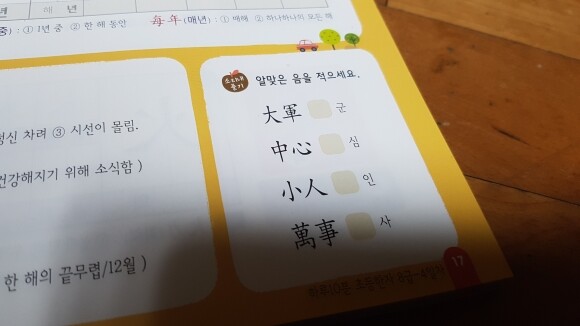 해 년
중) : ① 1년 중 ② 한 해 동안
每年 (매년) : ① 매해 ② 하나하나의 모든 해
정신 차려 ③ 시선이 몰림.
건강해지기 위해 소식함 )
한 해의 끝무렵/12월 )
알맞은 음을 적으세요.
大軍 군
中心 심
小人 인
萬事 사
17